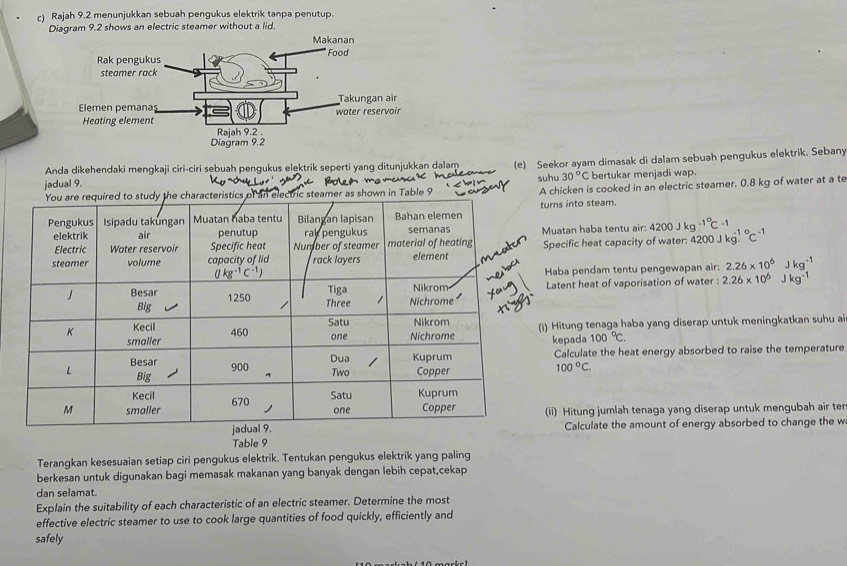 c) Rajah 9.2 menunjukkan sebuah pengukus elektrik tanpa penutup.
Diagram 9.2 shows an electric steamer without a lid.
Makanan
Food
Rak pengukus
steamer rack
Takungan air
water reservoir
Elemen pemanas
Heating element
Rajah 9.2 .
Diagram 9.2
Anda dikehendaki mengkaji ciri-ciri sebuah pengukus elektrik seperti yang ditunjukkan dalam
jadual 9.
You are required to study the characteristics of an electric steamer as shown in Table 9
Pengukus elektrik Electric steamer | Isipadu takungan air Water reservoir volume | Muatan haba tentu penutup Specific heat capacity of lid (J kg⁻¹ C⁻¹) | Bilangan lapisan rak pengukus Number of steamer rack layers | Bahan elemen semanas material of heating element
J | Besar Big | 1250 | Tiga Three | Nikrom Nichrome
K | Kecil smaller | 460 | Satu one | Nikrom Nichrome
L | Besar Big | 900 | Dua Two | Kuprum Copper
M | Kecil smaller | 670 | Satu one | Kuprum Copper
jadual 9.
Table 9
Terangkan kesesuaian setiap ciri pengukus elektrik. Tentukan pengukus elektrik yang paling
berkesan untuk digunakan bagi memasak makanan yang banyak dengan lebih cepat,cekap
dan selamat.
Explain the suitability of each characteristic of an electric steamer. Determine the most
effective electric steamer to use to cook large quantities of food quickly, efficiently and
safely
(e) Seekor ayam dimasak di dalam sebuah pengukus elektrik. Sebany
suhu 30 °C bertukar menjadi wap.
A chicken is cooked in an electric steamer. 0.8 kg of water at a te
turns into steam.
Muatan haba tentu air: 4200 J kg⁻¹ °C⁻¹
Specific heat capacity of water: 4200 J kg⁻¹ °C⁻¹
Haba pendam tentu pengewapan air: 2.26 x 10⁶ J kg⁻¹
Latent heat of vaporisation of water : 2.26 x 10⁶ J kg⁻¹
(i) Hitung tenaga haba yang diserap untuk meningkatkan suhu ai
kepada 100 °C.
Calculate the heat energy absorbed to raise the temperature
100 °C.
(ii) Hitung jumlah tenaga yang diserap untuk mengubah air ter
Calculate the amount of energy absorbed to change the wa